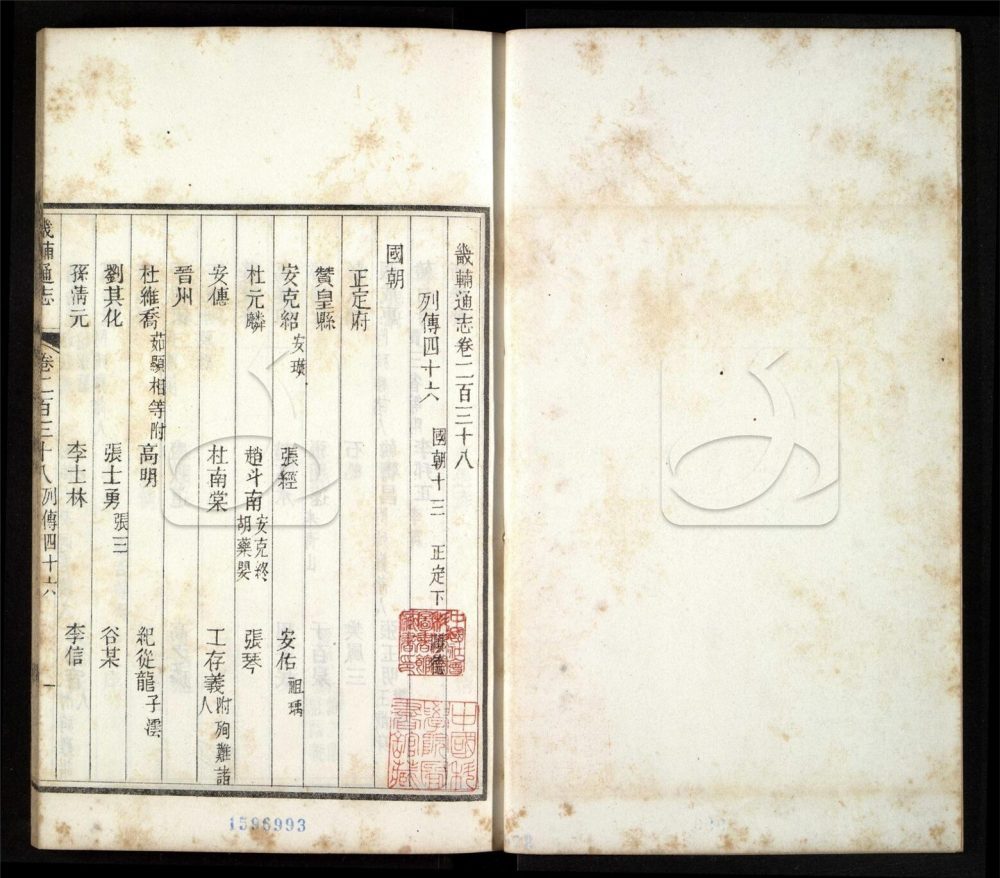 畿輔通志卷二百三十八
列傳四十六 國朝十三 正定下 附順德
國朝
正定府
贊皇縣
安克紹 安璞 張經 安佑 祖瑀
杜元麟 趙斗南 安克終 胡藥嬰 張琴
安傳 杜南棠 工存義 附殉難諸人
晉州
杜維喬 茹顯相等附 高明 紀從龍 子澐
劉其化 張士勇 張三 谷某
孫清元 李士林 李信
畿輔通志 卷二百三十八 列傳四十六 一
中國科學院圖書館藏
1596993